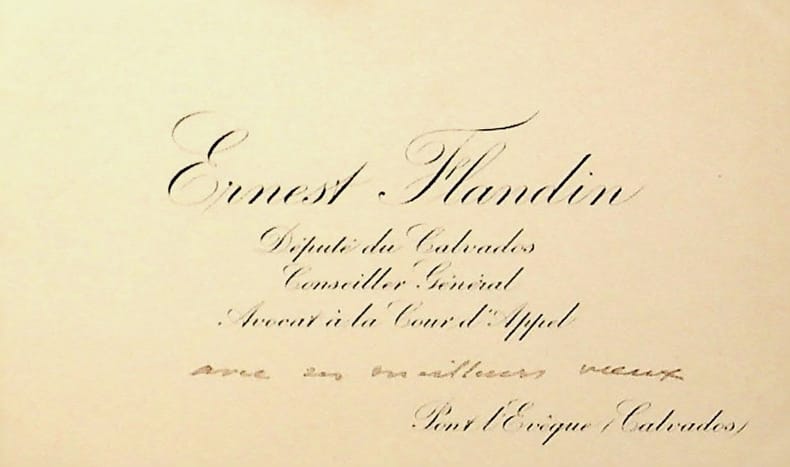 Ernest Flandin
Député du Calvados
Conseiller Général
Avocat à la Cour d'Appel
avec ses meilleurs vœux
Pont l'Evêque (Calvados)